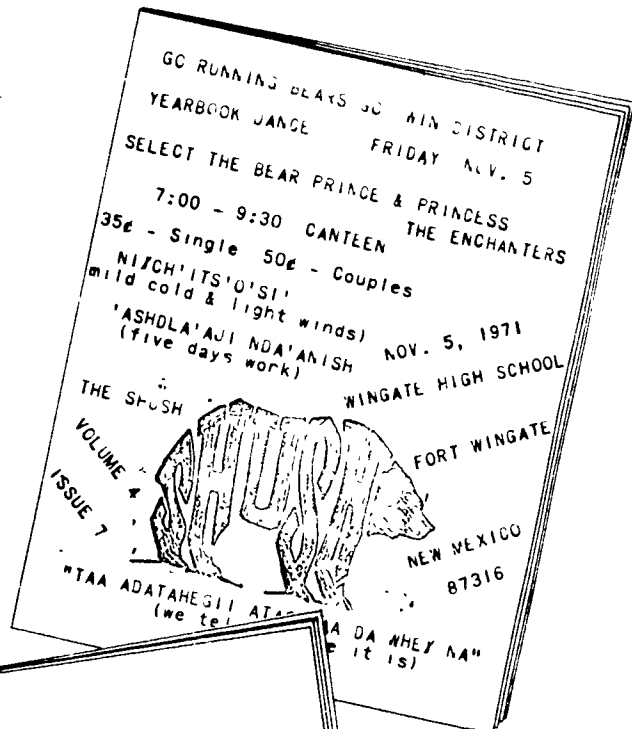 GO RUNNING BEARS GO WIN DISTRICT
YEARBOOK DANCE FRIDAY NOV. 5
SELECT THE BEAR PRINCE & PRINCESS
7:00 - 9:30 CANTEEN THE ENCHANTERS
35¢ - Single 50¢ - Couples
NIŁCH'ITS'O'SI'
mild cold & light winds)
'ASHDLA'AJI NDA'ANISH NOV. 5, 1971
(five days work)
THE SHUSH WINGATE HIGH SCHOOL
VOLUME 4 FORT WINGATE
ISSUE 7
NEW MEXICO
87316
"TAA ADATAHEGII DA WHEŁ NA"
(we it is)